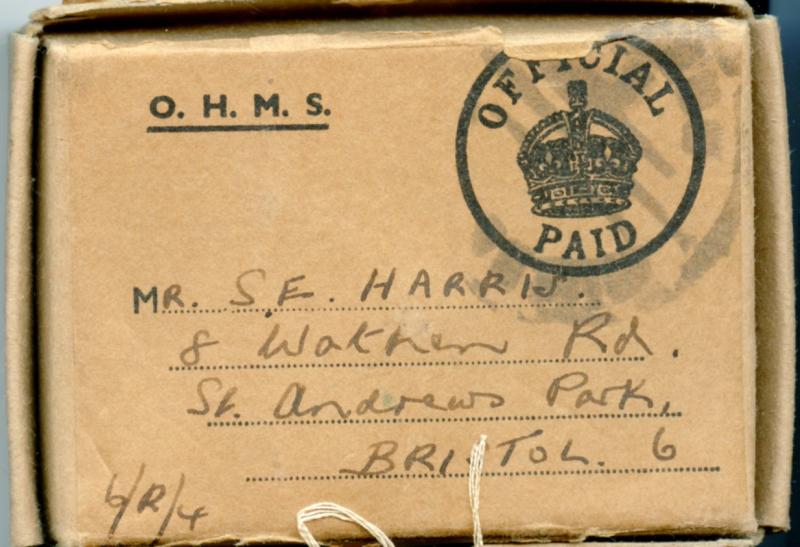 O. H. M. S.
OFFICIAL
PAID
MR. S.E. HARRIS.
8 Wathen Rd.
St. Andrews Park,
BRISTOL. 6
6/R/4